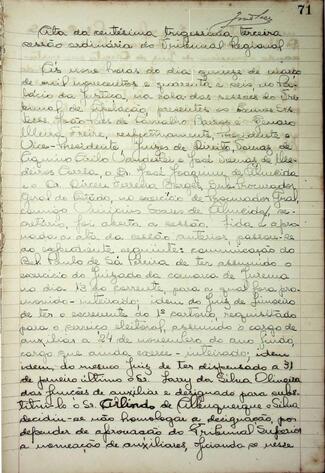 71
Ata da centésima trigesima terceira
sessão ordinária do Tribunal Regional
Às nove horas do dia quinze de março
de mil novecentos e quarenta e seis, no Pa-
lácio da Justiça, na sala das sessões do Tri-
bunal de Apelação, presentes os Exmos Srs
Deses João Paes de Carvalho Barros e Genaro
Freire, respectivamente, Presidente e
Vice-Presidente, Juizes de Direito, Tomaz de
Aquino Cirilo Wanderley e José Tomaz de Me-
deiros Correia, o Dr. José Joaquim de Almeida
e o Dr. Dirceu Ferreira Borges, Sub-Procurador
Geral do Estado, no exercicio de Procurador Geral,
comigo Soares de Almeida, se-
cretário, foi aberta a sessão. Lida e apro-
vada a ata da sessão anterior, passou-se
ao expediente seguinte: comunicação do
Bel Paulo de Sá Pereira de ter assumido o
exercicio do Juizado da comarca de Jurema
no dia 13 do corrente, para a qual fora pro-
movido - inteirado; idem do Juiz de Limoeiro
de ter o escrevente do 1º cartorio, requisitado
para o serviço eleitoral, assumido o cargo de
auxiliar a 24 de novembro do ano findo,
cargo que ainda exerce - inteirado; idem
idem, do mesmo Juiz de ter dispensado a 31
de janeiro último o Sr. Larry da Silva Oliveira
das funções de auxiliar e designado para subs-
titui-lo o Sr. Arlindo de Albuquerque e Silva
decidiu-se não homologar a designação por
depender de aprovação do Tribunal Superior
a nomeação de auxiliares, oficiando-se nesse